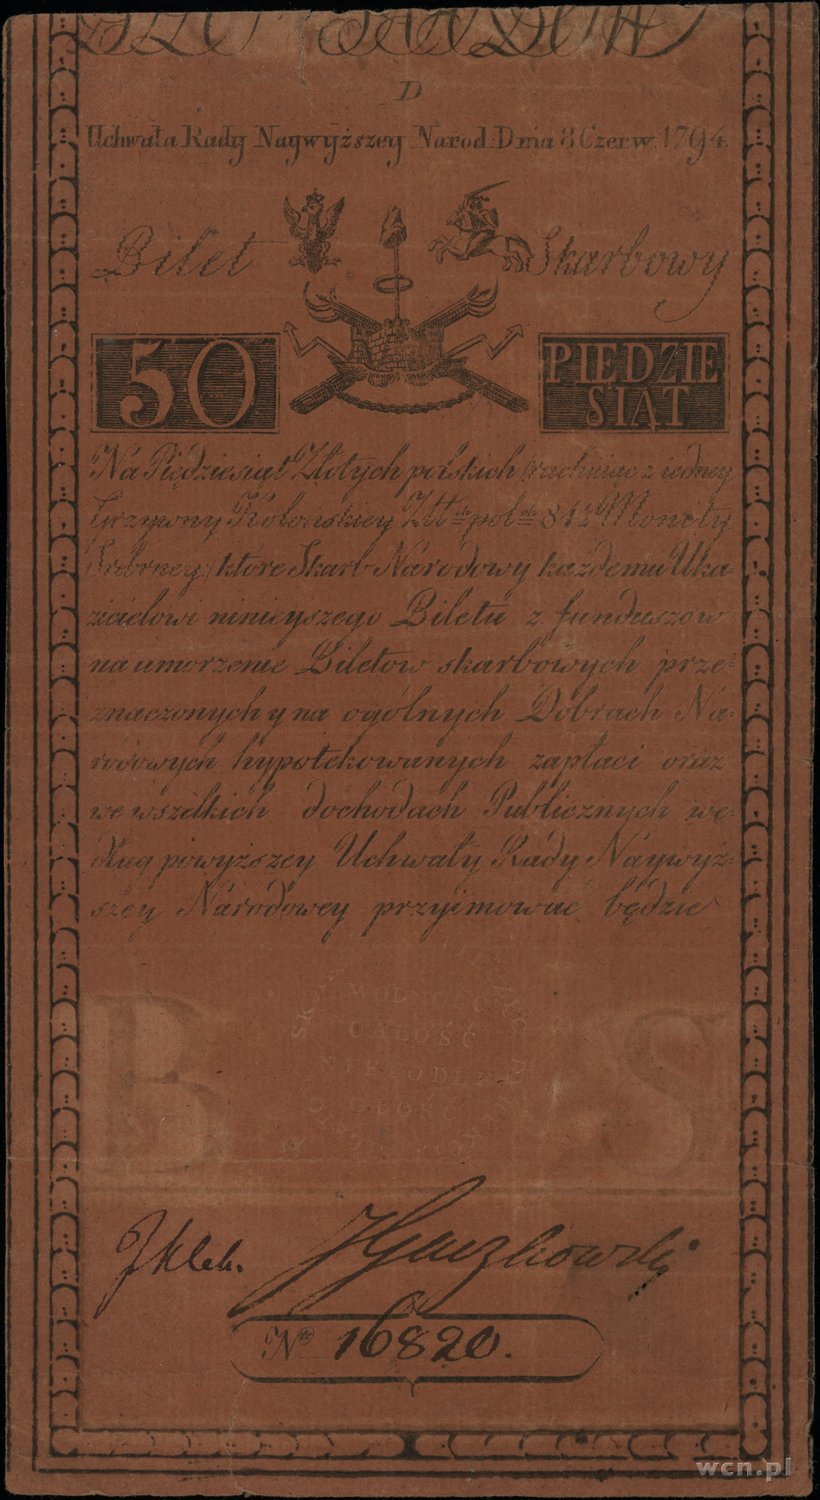 D
Uchwała Rady Naywyższey Narod: Dnia 8 Czerw. 1794
Bilet Skarbowy
50 PIĘDZIE SIĄT
Na Piędziesiąt Złotych polskich rachuiąc z iedney
Grzywny Kolońskiey Złł pol 84½ Monety
Srebrney, które Skarb Narodowy każdemu Uka-
zicielowi ninieyszego Biletu z funduszow
na umorzenie Biletow skarbowych prze-
znaczonych y na ogólnych Dobrach Na-
rodowych hypotekowanych zapłaci oraz
we wszelkich dochodach Publicznych we-
dług powyższey Uchwały Rady Naywyż-
szey Narodowey przyimować będzie
WOLNOŚĆ
CAŁOŚĆ
NIEPODLE
GŁOŚĆ
B S
No 16820.
wcn.pl